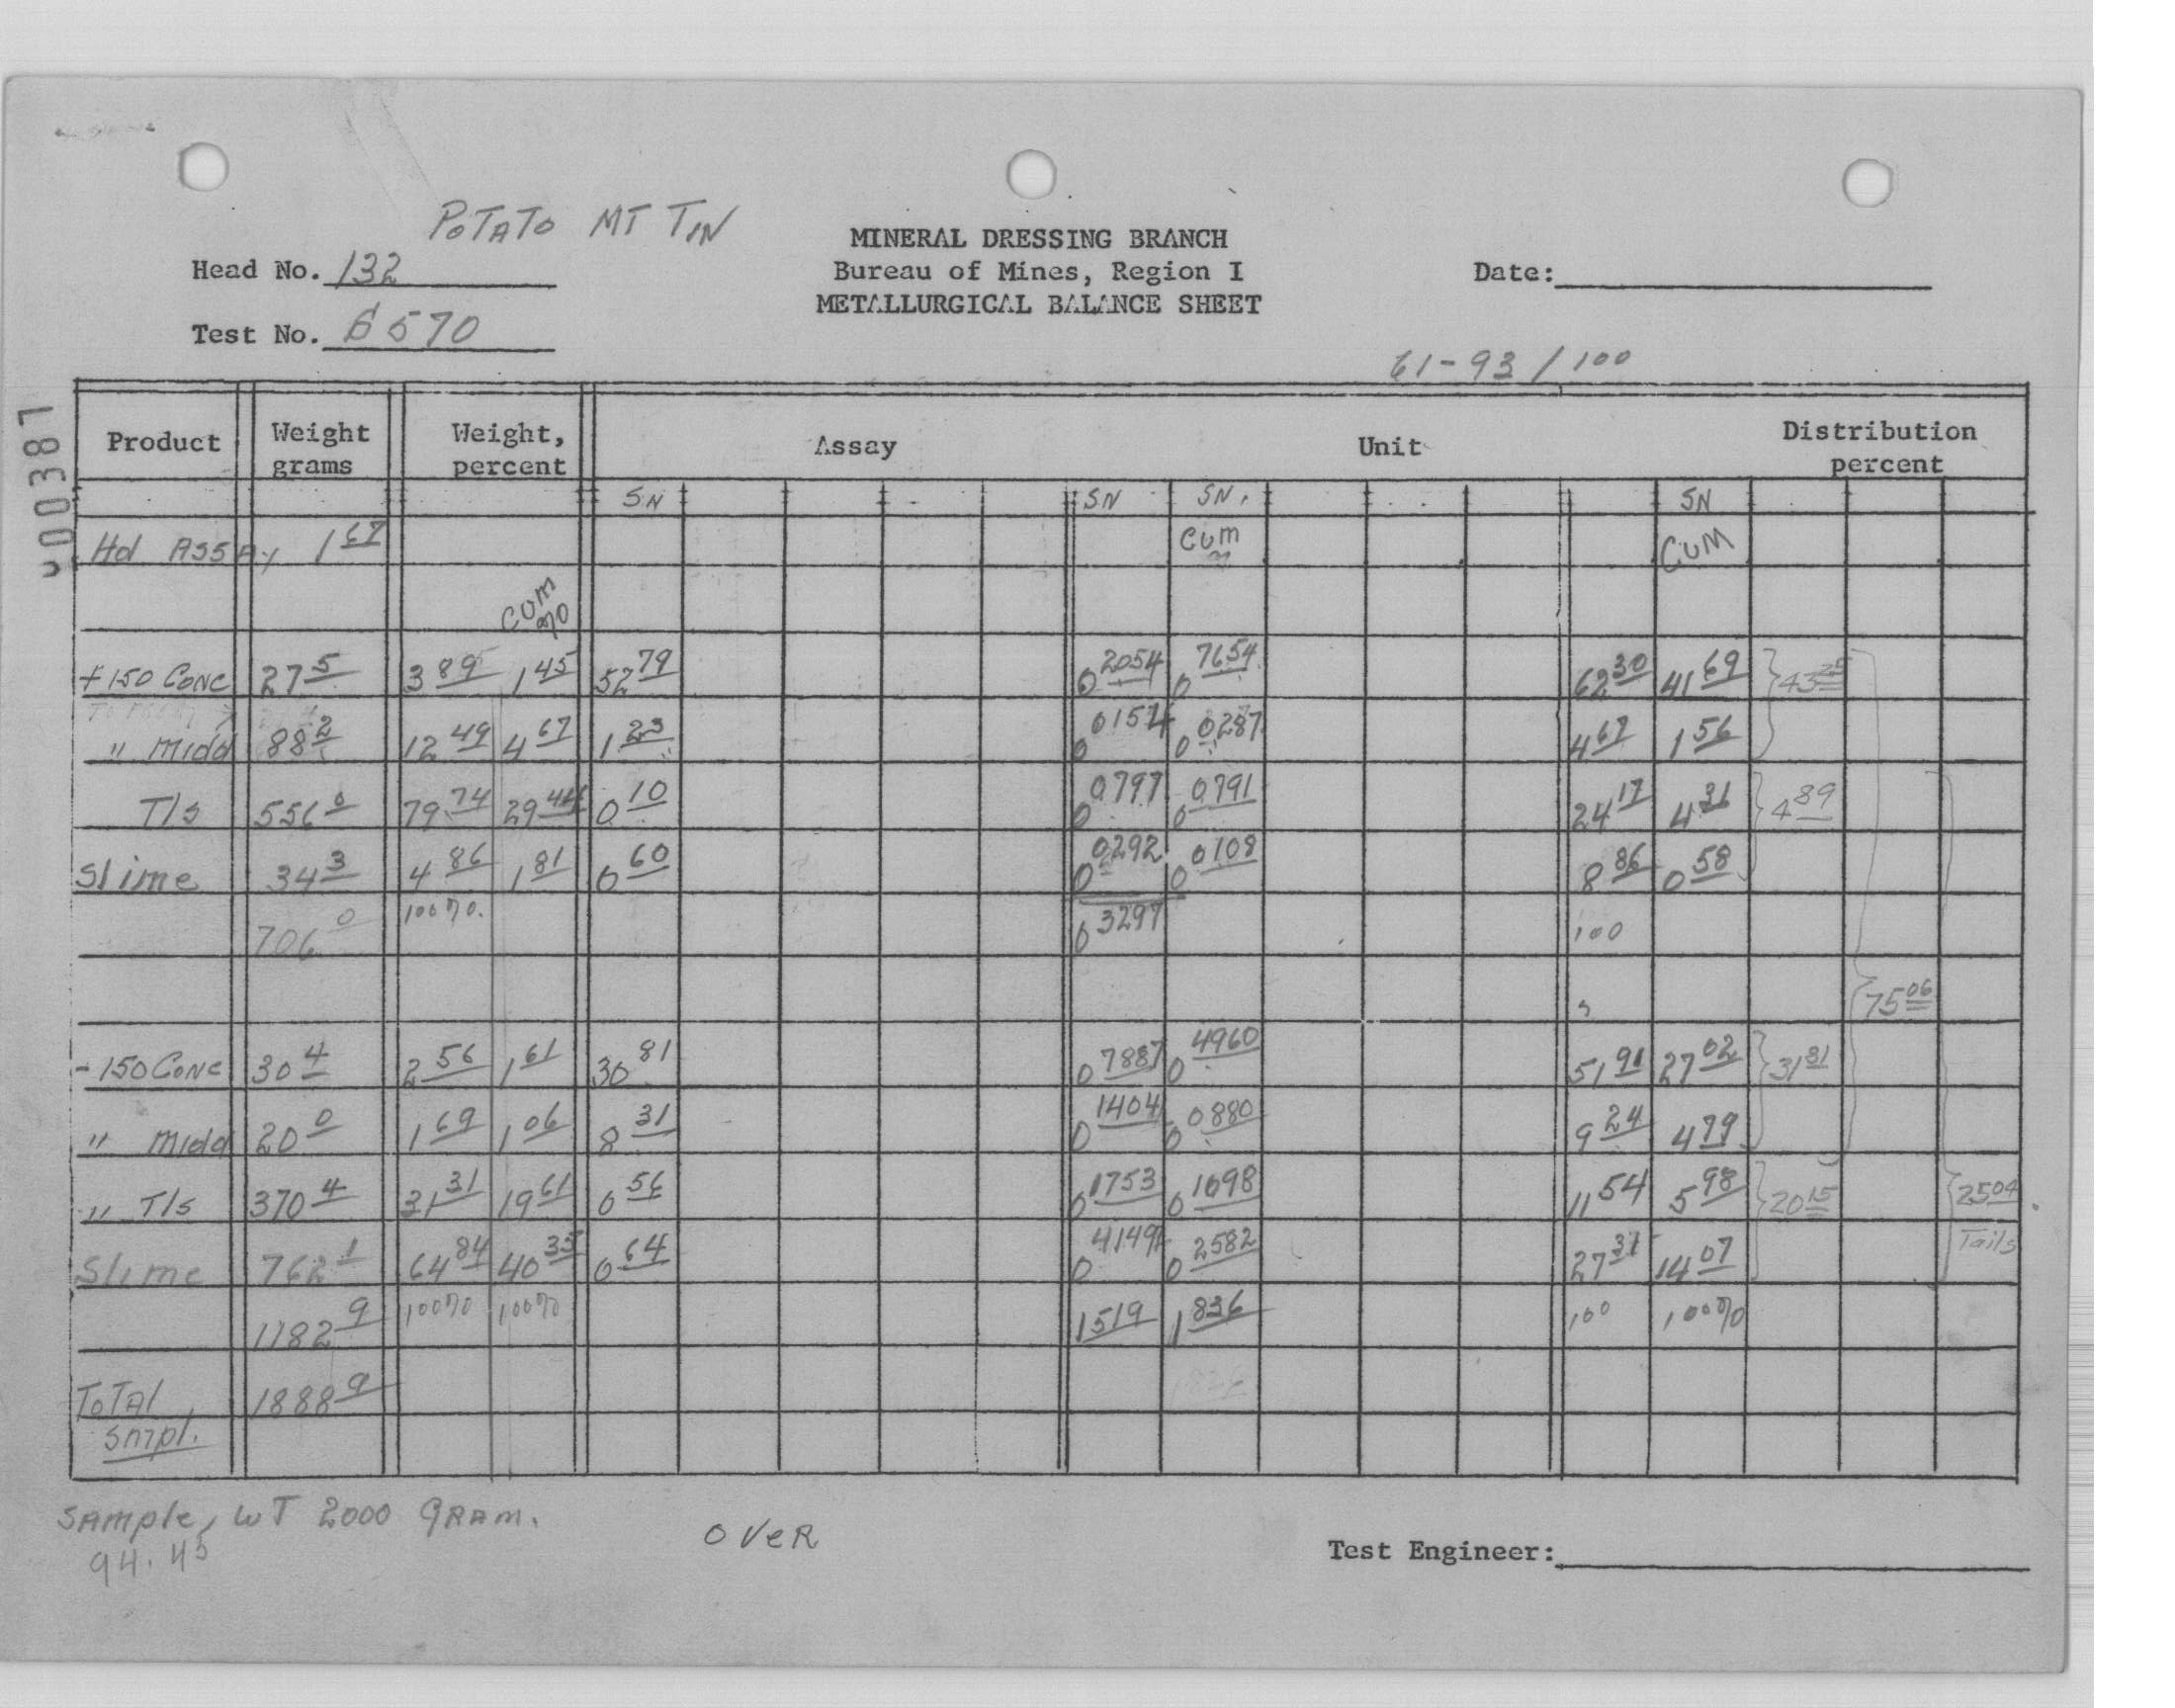 POTATO MT TIN
MINERAL DRESSING BRANCH
Head No. 132 Bureau of Mines, Region I Date:
METALLURGICAL BALANCE SHEET
Test No. 6570
61-93/100
00387
Product Weight grams Weight, percent Assay Unit Distribution percent
SN SN SN. SN
Hd ASSAY 1 67 Cum CUM
Cum %
+150 Conc 27 5 3 89 1 45 52 79 0 2054 0 7654 62 30 41 69 43 25
" Midd 88 2 12 49 4 67 1 23 0 0154 0 0287 4 67 1 56
T/s 556 0 79 74 29 44 0 10 0 0797 0 0791 24 17 4 31 4 89
Slime 34 3 4 86 1 81 0 60 0 0292 0 0108 8 86 0 58
706 0 100%. 0 3297 100
75 06
-150 Conc 30 4 2 56 1 61 30 81 0 7887 0 4960 51 91 27 02 31 81
" Midd 20 0 1 69 1 06 8 31 0 1404 0 0880 9 24 4 79
" T/s 370 4 31 31 19 61 0 56 0 1753 0 1098 11 54 5 98 20 15 25 04
Slime 762 1 64 84 40 35 0 64 0 4149 0 2582 27 31 14 07 Tails
1182 9 100% 100% 1519 1 836 100 100%
Total 1888 9
Smpl.
Sample, WT 2000 GRAM.
94.45
OVER
Test Engineer: